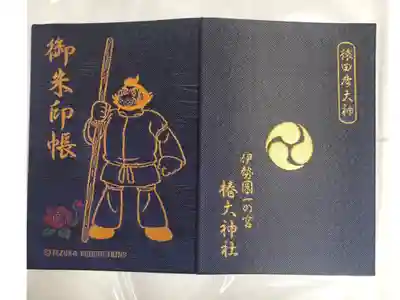 御朱印帳
©TEZUKA PRODUCTIONS
猿田彦大神
伊勢國一の宮
椿大神社